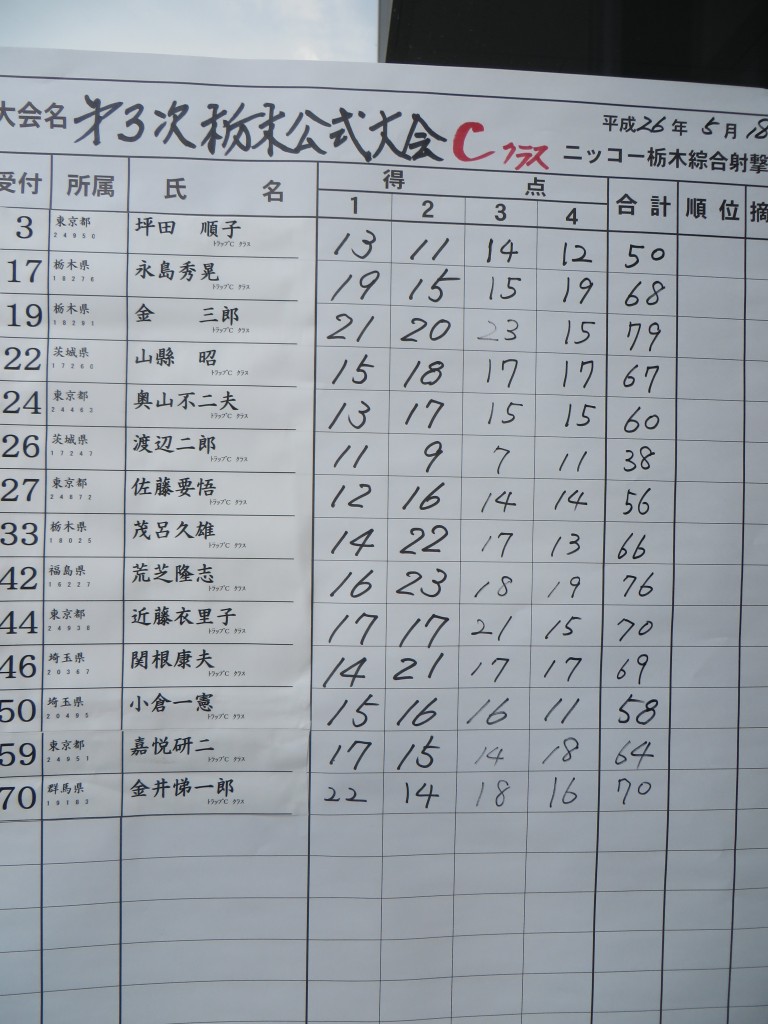 大会名 第3次栃木公式大会 Cクラス
平成26年5月18
ニッコー栃木綜合射撃
受付 所属 氏名 得点 合計 順位 摘
1 2 3 4
3 東京都 24950 坪田 順子 トラップC クラス 13 11 14 12 50
17 栃木県 18276 永島秀晃 トラップC クラス 19 15 15 19 68
19 栃木県 18291 金 三郎 トラップC クラス 21 20 23 15 79
22 茨城県 17260 山縣 昭 トラップC クラス 15 18 17 17 67
24 東京都 24463 奥山不二夫 トラップC クラス 13 17 15 15 60
26 茨城県 17247 渡辺二郎 トラップC クラス 11 9 7 11 38
27 東京都 24672 佐藤要悟 トラップC クラス 12 16 14 14 56
33 栃木県 18025 茂呂久雄 トラップC クラス 14 22 17 13 66
42 福島県 16227 荒芝隆志 トラップC クラス 16 23 18 19 76
44 東京都 24936 近藤衣里子 トラップC クラス 17 17 21 15 70
46 埼玉県 20367 関根康夫 トラップC クラス 14 21 17 17 69
50 埼玉県 20495 小倉一憲 トラップC クラス 15 16 16 11 58
59 東京都 24951 嘉悦研二 トラップC クラス 17 15 14 18 64
70 群馬県 19183 金井悌一郎 トラップC クラス 22 14 18 16 70